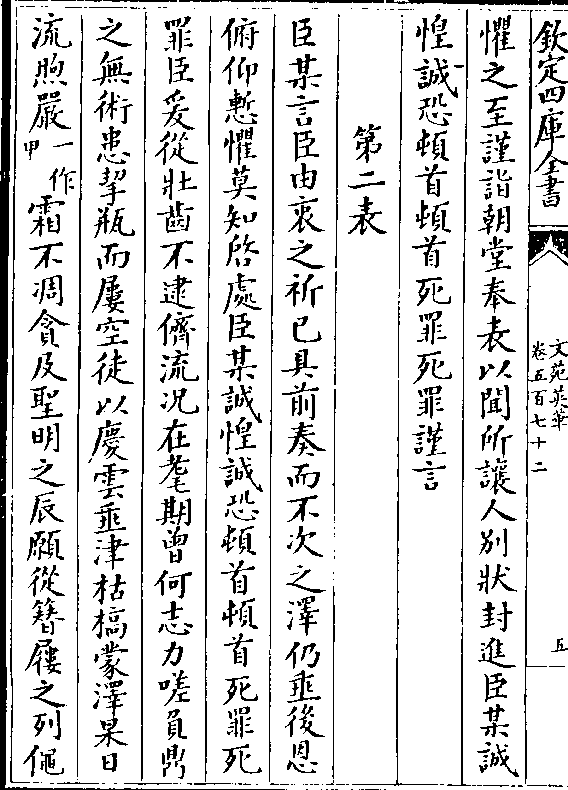 欽定四庫全書
文苑英華
卷五百七十二
五
懼之至謹詣朝堂奉表以聞所讓人别狀封進臣某誠
惶誠恐頓首頓首死罪死罪謹言
第二表
臣某言臣由衷之祈已具前奏而不次之澤仍垂後恩
俯仰慙懼莫知啓處臣某誠惶誠恐頓首頓首死罪死
罪臣爰從壯齒不逮儕流况在耄期曾何志力嗟負鼎
之無術患挈瓶而屢空徒以慶雲垂津枯槁蒙澤杲日
流煦嚴一作甲霜不凋貪及聖明之辰願從簪屨之列僶